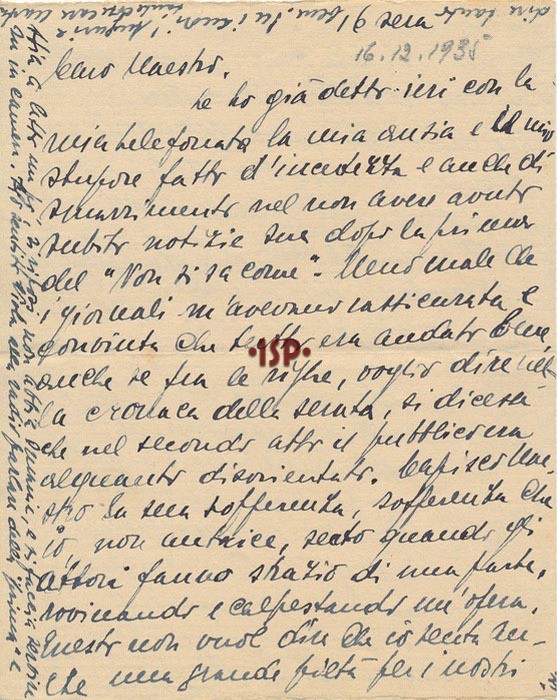 16 sera
16.12.1935
Caro Maestro,
Le ho già detto ieri con la
mia telefonata la mia ansia e il mio
stupore fatto d'incertezza e anche di
smarrimento nel non avere avuto
subito notizie sue dopo la prima
del "Non si sa come". Meno male che
i giornali m'avevano rassicurata e
convinta che tutto era andato bene
anche se fra le righe, voglio dire nel-
la cronaca della serata, si diceva
che nel secondo atto il pubblico era
alquanto disorientato. Capisco Mae
stro la sua sofferenza, sofferenza che
io, non autrice, sento quando gli
attori fanno strazio di una parte,
rovinando e calpestando un'opera.
Questo non vuol dire che io senta an-
che una grande pietà per i nostri
·ISP·